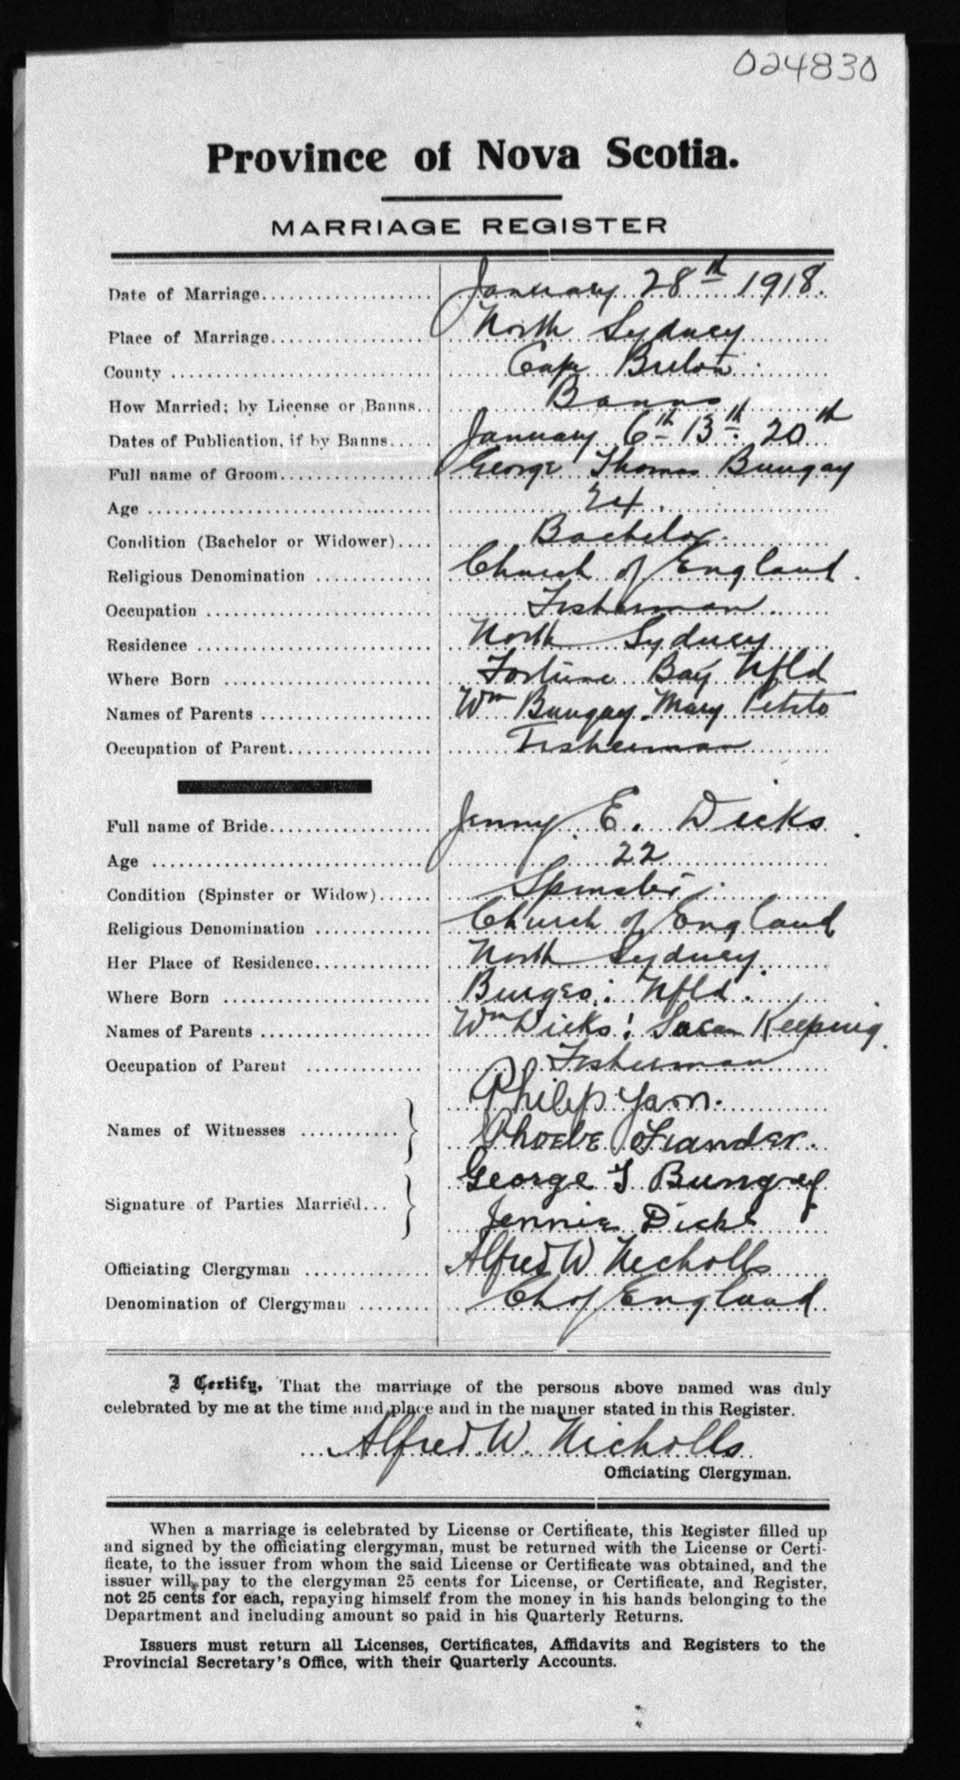 024830
Province of Nova Scotia.
MARRIAGE REGISTER
Date of Marriage.................... January 28th 1918.
Place of Marriage................... North Sydney
County .............................. Cape Breton
How Married; by License or Banns.. Banns
Dates of Publication, if by Banns..... January 6th 13th 20th
Full name of Groom................. George Thomas Bungay
Age ................................ 24.
Condition (Bachelor or Widower).... Bachelor.
Religious Denomination ............. Church of England.
Occupation ......................... Fisherman.
Residence .......................... North Sydney
Where Born ........................ Fortune Bay Nfld
Names of Parents ................... Wm Bungay. Mary Petito
Occupation of Parent................ Fisherman
Full name of Bride.................. Jenny E. Dicks.
Age ................................ 22
Condition (Spinster or Widow)...... Spinster.
Religious Denomination ............. Church of England
Her Place of Residence.............. North Sydney.
Where Born ........................ Burgeo: Nfld.
Names of Parents ................... Wm Dicks: Susan Keeping.
Occupation of Parent .............. Fisherman
Philip Yarn.
Names of Witnesses ...........
Phoebe
George T Bungay
Signature of Parties Married...
Jennie Dicks
Officiating Clergyman .............. Alfred W Nicholls
Denomination of Clergyman ........ Ch of England
I Certify, That the marriage of the persons above named was duly
celebrated by me at the time and place and in the manner stated in this Register.
Alfred. W. Nicholls
Officiating Clergyman.
When a marriage is celebrated by License or Certificate, this Register filled up
and signed by the officiating clergyman, must be returned with the License or Certi-
ficate, to the issuer from whom the said License or Certificate was obtained, and the
issuer will pay to the clergyman 25 cents for License, or Certificate, and Register,
not 25 cents for each, repaying himself from the money in his hands belonging to the
Department and including amount so paid in his Quarterly Returns.
Issuers must return all Licenses, Certificates, Affidavits and Registers to the
Provincial Secretary's Office, with their Quarterly Accounts.